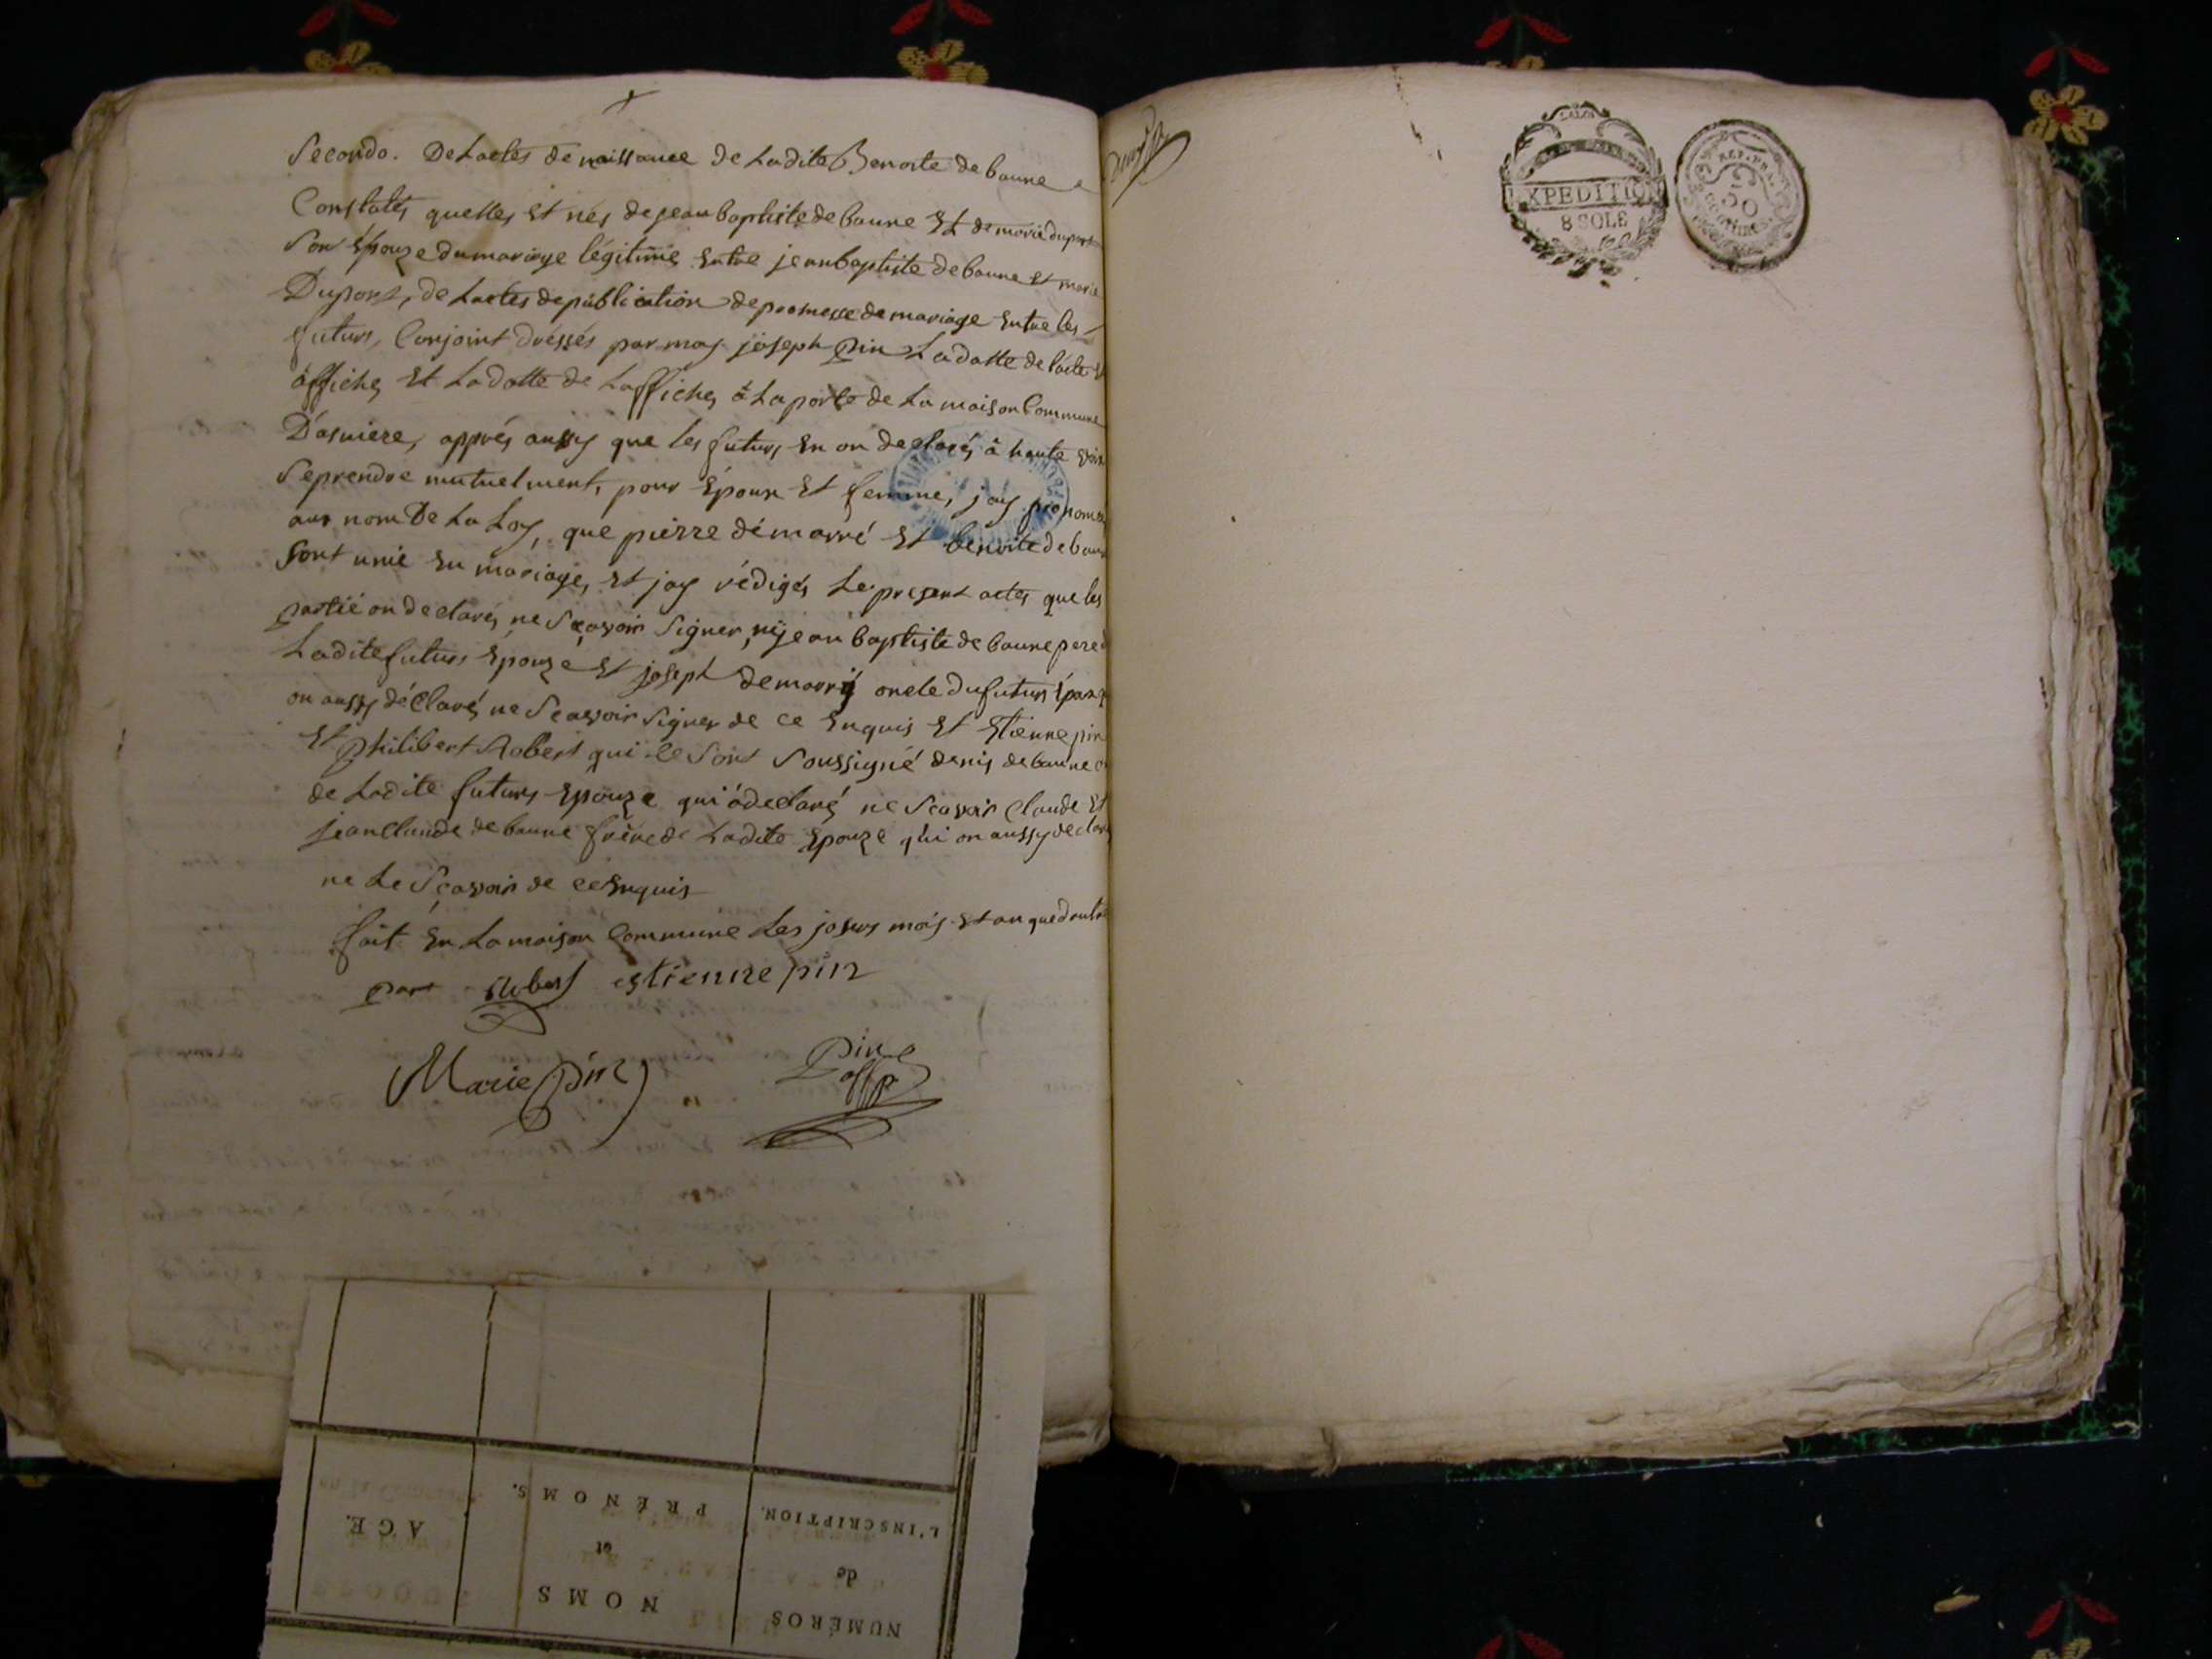 Secondo. De Lactes de naissance de Ladite Benoite de baune
Constatés quelles Et nés de jean baptiste de baune Et de marie dupont
Son Épouze du mariage légitimé Entre jean baptiste de baune et marie
Dupont, de Lactes de publication de promesse de mariage Entre les
futurs, Conjoint dréssés par moy joseph Pin La datte de lacte Et
affiches Et La datte de Laffiches à La porte de La maison Commune
D'asniere, apprés aussy que les futurs En on declarés à haute voix
Se prendre mutuelment, pour Époux Et femme, jay prononcé
aux nom De La Loy, que pierre démarré Et benoite de baune
Sont unie En mariage, Et jay rédigés Le present actes que les
partie on declarés ne Sçavoir Signer, ny jean baptiste de baune pere d
Ladite futurs Epouze Et joseph demarré oncle du futurs Épaux q
on aussy déClarés ne Sçavoir Signer de ce Enquis Et Etienne pin
Et Philibert Robert qui ce Sont Soussigné denis de baune
de Ladite futurs Epouze qui à declaré ne Sçavoir Claude Et
jean Claude de baune frere de Ladite Epouze qui on aussy declaré
ne Le Sçavoir de ce Enquis
fait En La maison Commune Les jours mois Et an que d'autre
part Robert estienne pin
Marie Pin
Pin
off p
EXPEDITION
8 SOLS
REP. FRA.
50
CENTIMES
NUMÉROS
de
L'INSCRIPTION.
NOMS
et
PRÉNOMS.
AGE.